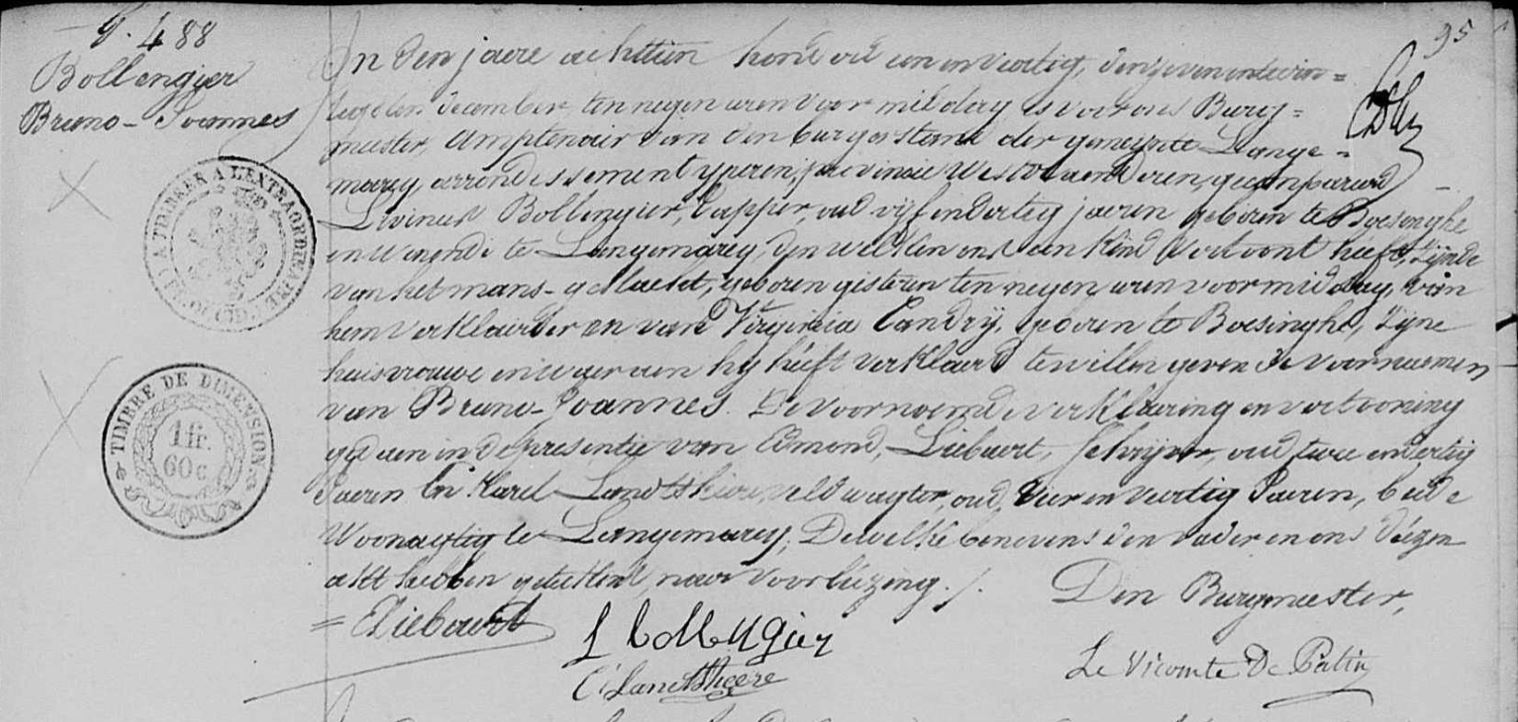 G. 488
Bollengier
Bruno-Joannes
95
In den jaere achttien hond. ord een en veertig, den zeven en twin=
tigsten december, ten negen uren voor middag is voor ons Burg=
meester, Amptenair van den burgerstand der gemeynte Lange=
marcq arrondissement yperen, provincie Westvlaenderen, gecompareerd
Livinus Bollengier, Kapper, oud vijf en dertig jaeren geboren te Boesinghe
en wonende te Langemarcq, den welken ons een kind vertoont heeft, zijnde
van het mans-geslacht, geboren gisteren ten negen uren voormiddag, van
hem verklaerder en van Virginia Candrÿ, geboren te Boesinghe, zijne
huisvrouwe en waer aen hy heeft verklaerd te willen geven de voornaemen
van Bruno-Joannes. De voornoemde verklaering en vertooning
gedaen in de presentie van Edmond, Liebaert, schrijver, oud twee en dertig
Jaeren En Karel Landtsheere, veldwagter, oud vier en veertig Jaeren, beide
Woonagtig te Langemarcq, Dewelke benevens den vader en ons dézen
akt hebben geteekend, naer voorlézing ./.
Den Burgmeester,
ELiebaert
L bollengier
C Landtsheere
Le Vicomte De Patin
A TIMBRER A L'EXTRAORDINAIRE
TIMBRE DE DIMENSION
1 fr.
60 c